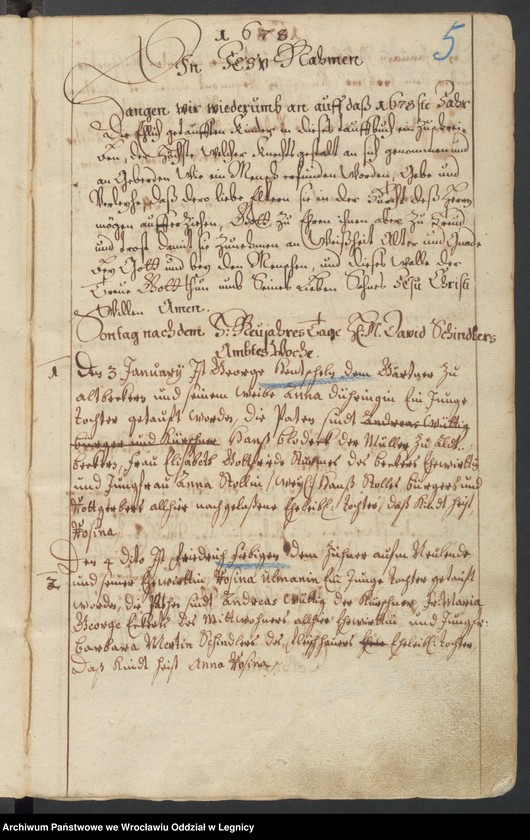 1678
5
In JESV Nahmen
Fangen wir wiederumb an auff daß 1678ste Jahr
Die Ehlich getaufften Kinder in dieses tauffbuch einzuschrei-
ben, der Höchste Welcher Knechts gestalt an sich genommen und
an Geberden Wie ein Mensch erfunden Worden, Gebe und
Verleyhe, daß dero liebe Eltern sie in der Furcht deß Herrn
mögen aufferziehen, Gott zu Ehren ihnen aber zu Freud
und trost damit sie Zunehmen an Weißheit Alter und Gnade
bey Gott und bey den Menschen, und dieses Wolle der
Treue Gott thun umb Seines Lieben Sohns Jesu Christi
Willen Amen.
Sontag nach dem Neüjahres Tage H. M. David Schindlers
Ambtes Woche.
1 Den 3 January Ist George dem Gärtner Zu
altbeckern und seinem Weibe Anna Ein Junge
tochter getaufft worden, die Paten sindt Andreas Wittig
bürger und Kürschner Hanß der Müller Zu Alt-
beckern, Frau Elisabeth Gottfriede des beckers Ehewirttin
und Jungfrau Anna Hanß Rolles bürgers und
Rottgerbers allhier nachgelaßene Eheleibl: tochter, daß Kindt heist
Rosina
2 Den 4 dito Ist Friedrich dem aufm
und seiner Ehewirttin, Rosina Ulmanin Ein Junge tochter getaufft
worden, die Pathen sindt Andreas Wittig der Kürschner, Fr: Maria
George des Mittwohners allhier Ehewirttin und Jungfr:
barbara Mertin Schindlers des Eheleibl: tochter
daß Kindt heist Anna Rosina
Archiwum Państwowe we Wrocławiu Oddział w Legnicy